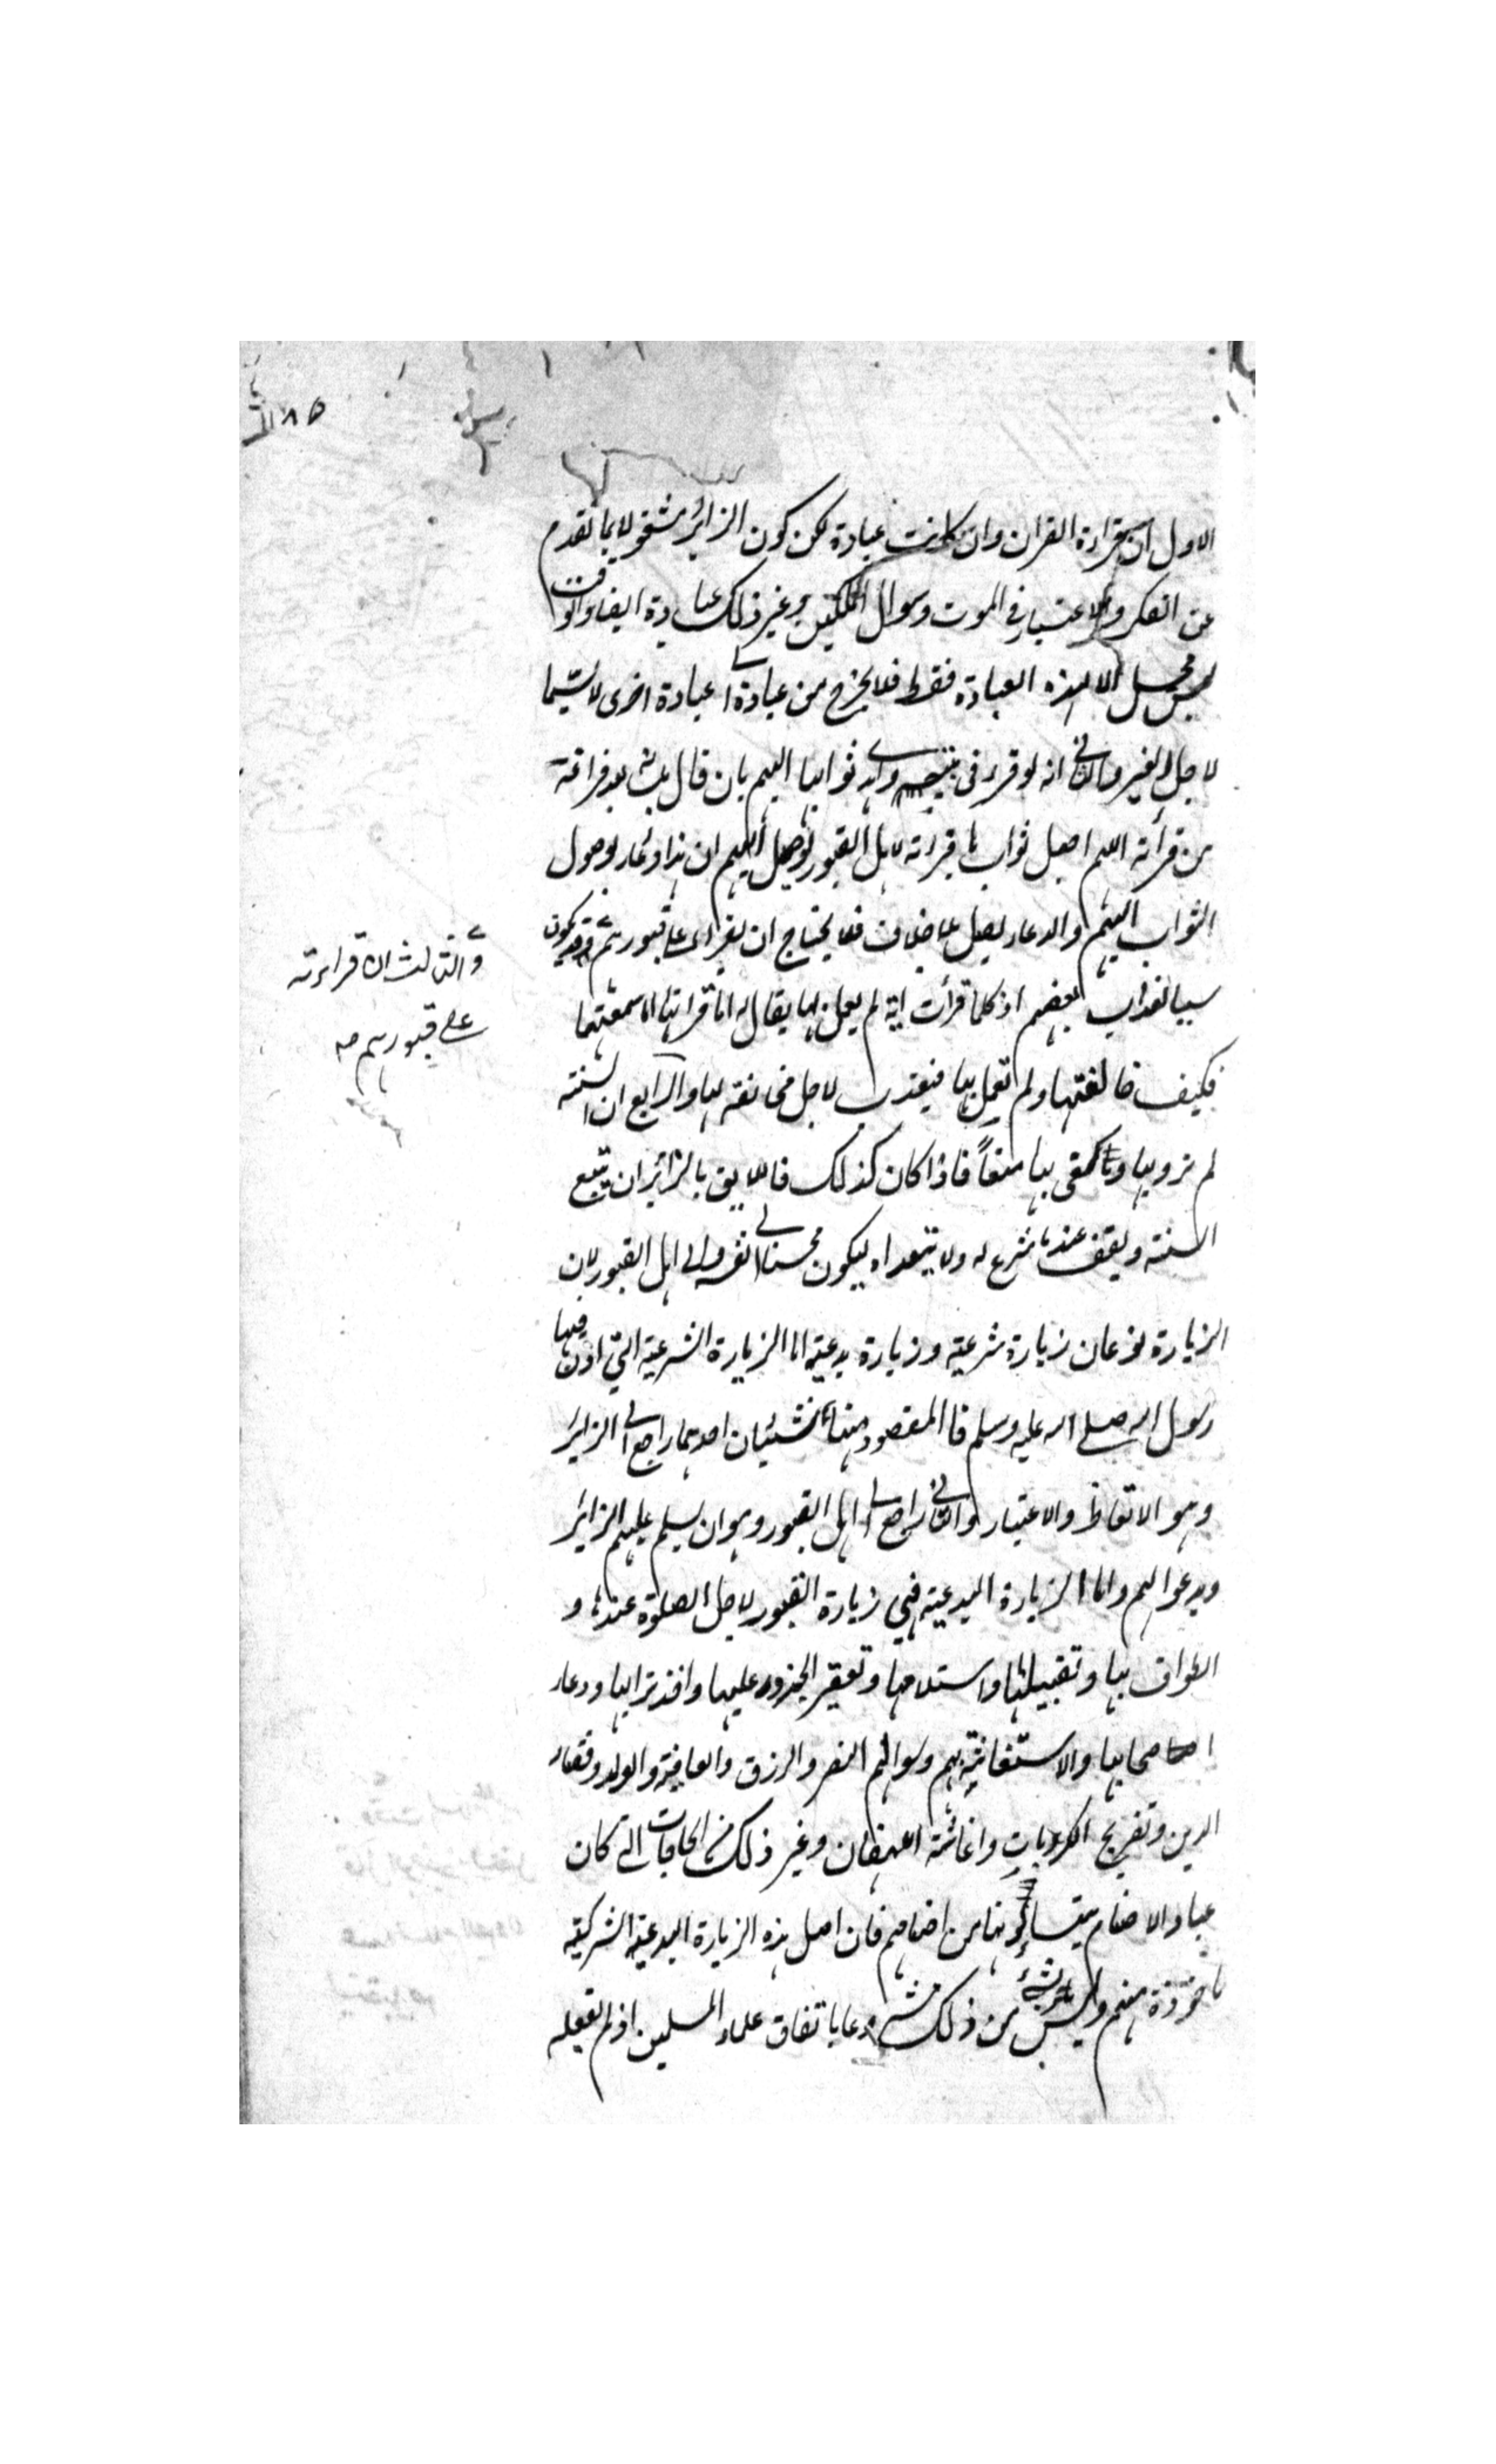 الاول ان قراءة القران وان كانت عبادة لكن كون الزائر مشغولا بما تقدم
من الفكر والاعتبار في الموت وسوال الملكين وغير ذلك عبادة ايضا والوقت
ليس محل الا لهذه العبادة فقط فلا يخرج من عبادة الى عبادة اخرى لا سيما
لاجل الغير والثاني انه لو قرء في بيته واهدى ثوابها اليهم بان قال بلسانه بعد فراغه
من قرأته اللهم اجعل ثواب ما قرأته لاهل القبور لوصل اليهم ان هذا دعاء لوصول
الثواب اليهم والدعاء يصل بلا خلاف فلا يحتاج ان يقرأ على قبورهم قد يكون
سببا لعذاب بعضهم اذ كلما قرأت اية لم يعمل بها يقال له اما قرأتها اما سمعتها
فكيف خالفتها ولم تعمل بها فيعذب لاجل مخالفته لها والرابع ان السنة
لم ترد بها وكفى بها منعاً فاذا كان كذلك فاللايق بالزائر ان يتبع
السنة ويقف عند ما شرع له ولا يتعداه ليكون محسنا الى نفسه والى اهل القبور لان
الزيارة نوعان زيارة شرعية وزيارة بدعية اما الزيارة الشرعية التي اذن فيها
رسول الله صلى الله عليه وسلم فالمقصود منها شيئان احدهما راجع الى الزائر
وهو الاتعاظ والاعتبار والثاني راجع الى اهل القبور وهو ان يسلم عليهم الزائر
ويدعو لهم واما الزيارة البدعية فهي زيارة القبور لاجل الصلوة عندها و
الطواف بها وتقبيلها واستلامها وتعفير الخدود عليها واخذ ترابها ودعاء
اصحابها والاستغاثة بهم وسوالهم النصر والرزق والعافية والولد وقضاء
الدين وتفريج الكربات واغاثة اللهفان وغير ذلك من الحاجات التي كان
عباد الاصنام يسألونها من اصنامهم فان اصل هذه الزيارة البدعية الشركية
ماخوذة منهم وليس شيء من ذلك مشروعا باتفاق علماء المسلمين اذ لم يفعله
والثالث ان قراءته
على قبورهم صه